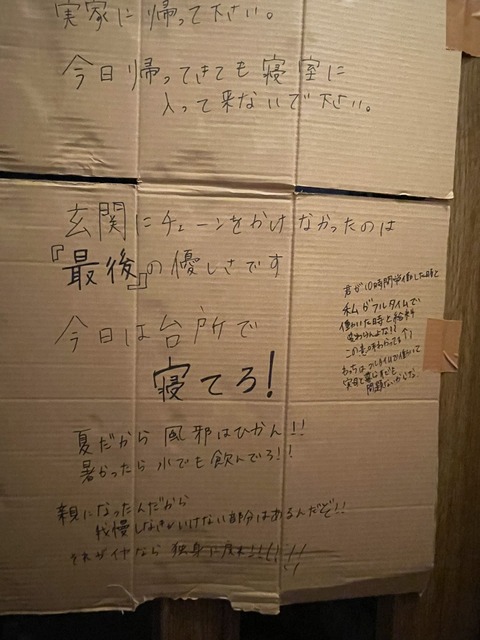 実家に帰って下さい。
今日帰ってきても寝室に
入って来ないで下さい。
玄関にチェーンをかけなかったのは
『最後』の優しさです
今日は台所で
寝てろ!
夏だから風邪はひかん!!
暑かったら水でも飲んでろ!!
親になったんだから
我慢しなきゃいけない部分はあるんだぞ!!
それがイヤなら独身に戻れ!!!!!!
君が10時間労働した時と
私がフルタイムで
働いた時と給料
変わらんよな!?
この意味わかってる?!
こっちはフルタイムで働いて
実母と暮らすも
問題ないからな。